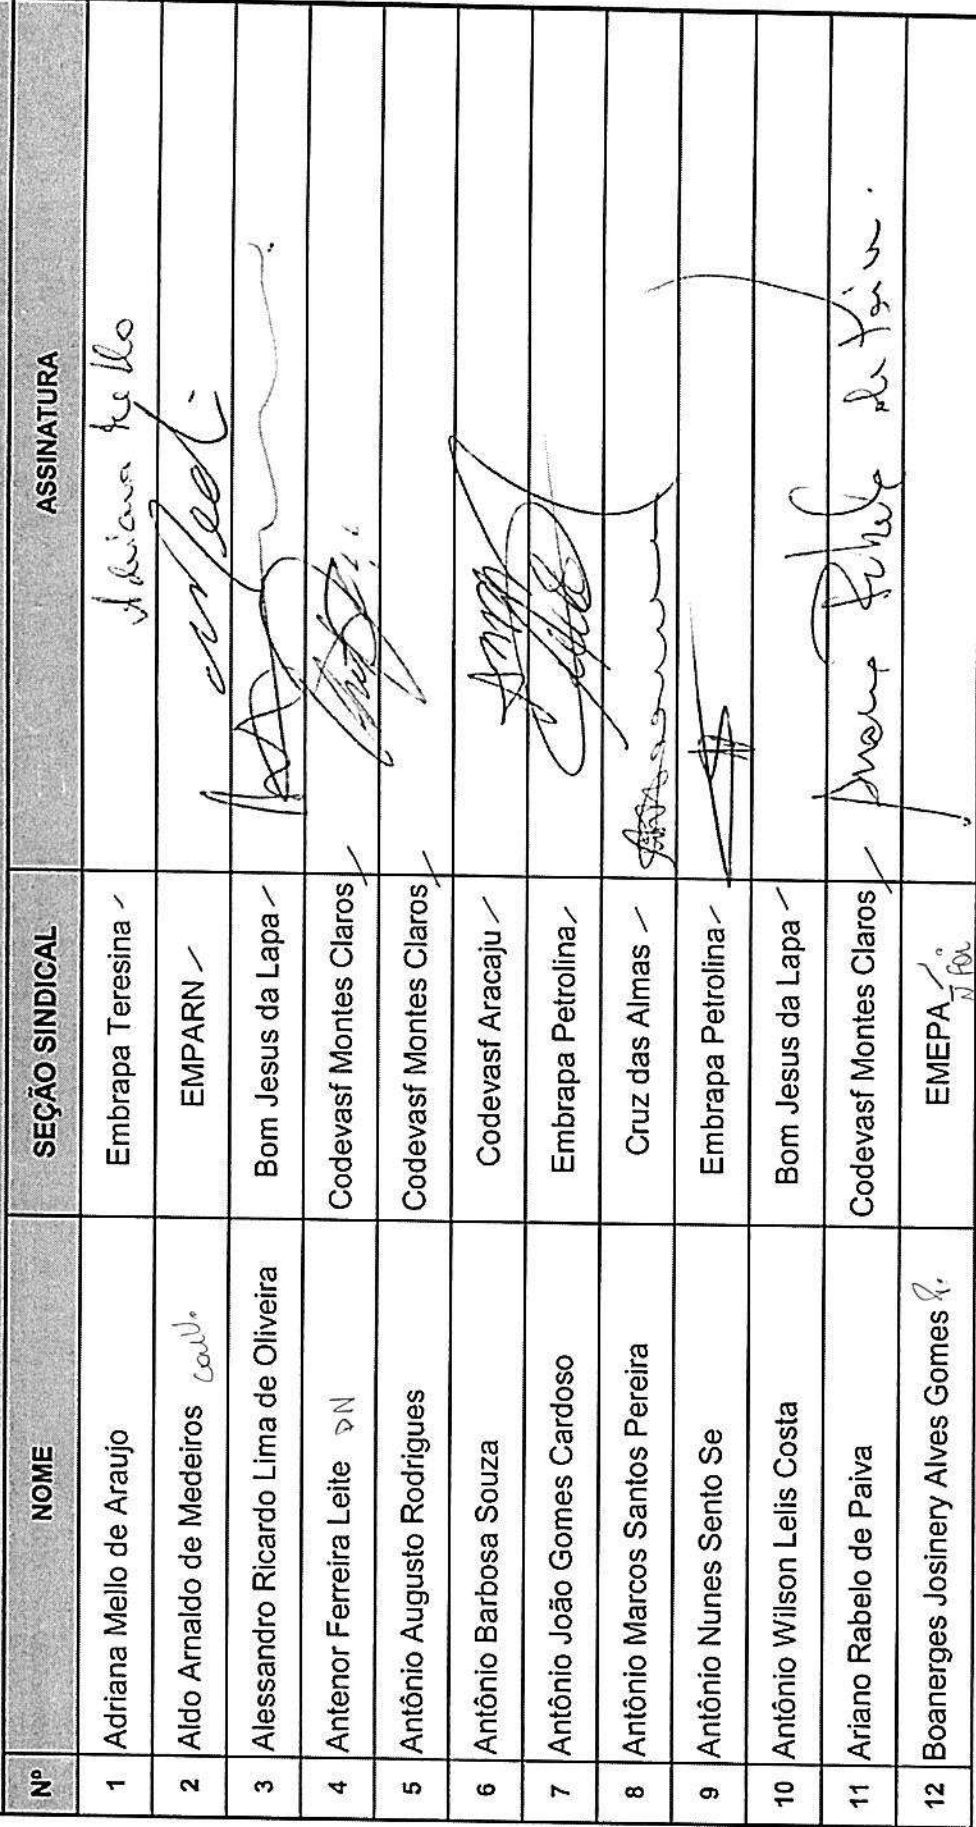 Nº NOME SEÇÃO SINDICAL ASSINATURA
1 Adriana Mello de Araujo Embrapa Teresina Adriana Mello
2 Aldo Arnaldo de Medeiros EMPARN
3 Alessandro Ricardo Lima de Oliveira Bom Jesus da Lapa
4 Antenor Ferreira Leite DN Codevasf Montes Claros
5 Antônio Augusto Rodrigues Codevasf Montes Claros
6 Antônio Barbosa Souza Codevasf Aracaju
7 Antônio João Gomes Cardoso Embrapa Petrolina
8 Antônio Marcos Santos Pereira Cruz das Almas
9 Antônio Nunes Sento Se Embrapa Petrolina
10 Antônio Wilson Lelis Costa Bom Jesus da Lapa
11 Ariano Rabelo de Paiva Codevasf Montes Claros
12 Boanerges Josinery Alves Gomes EMEPA